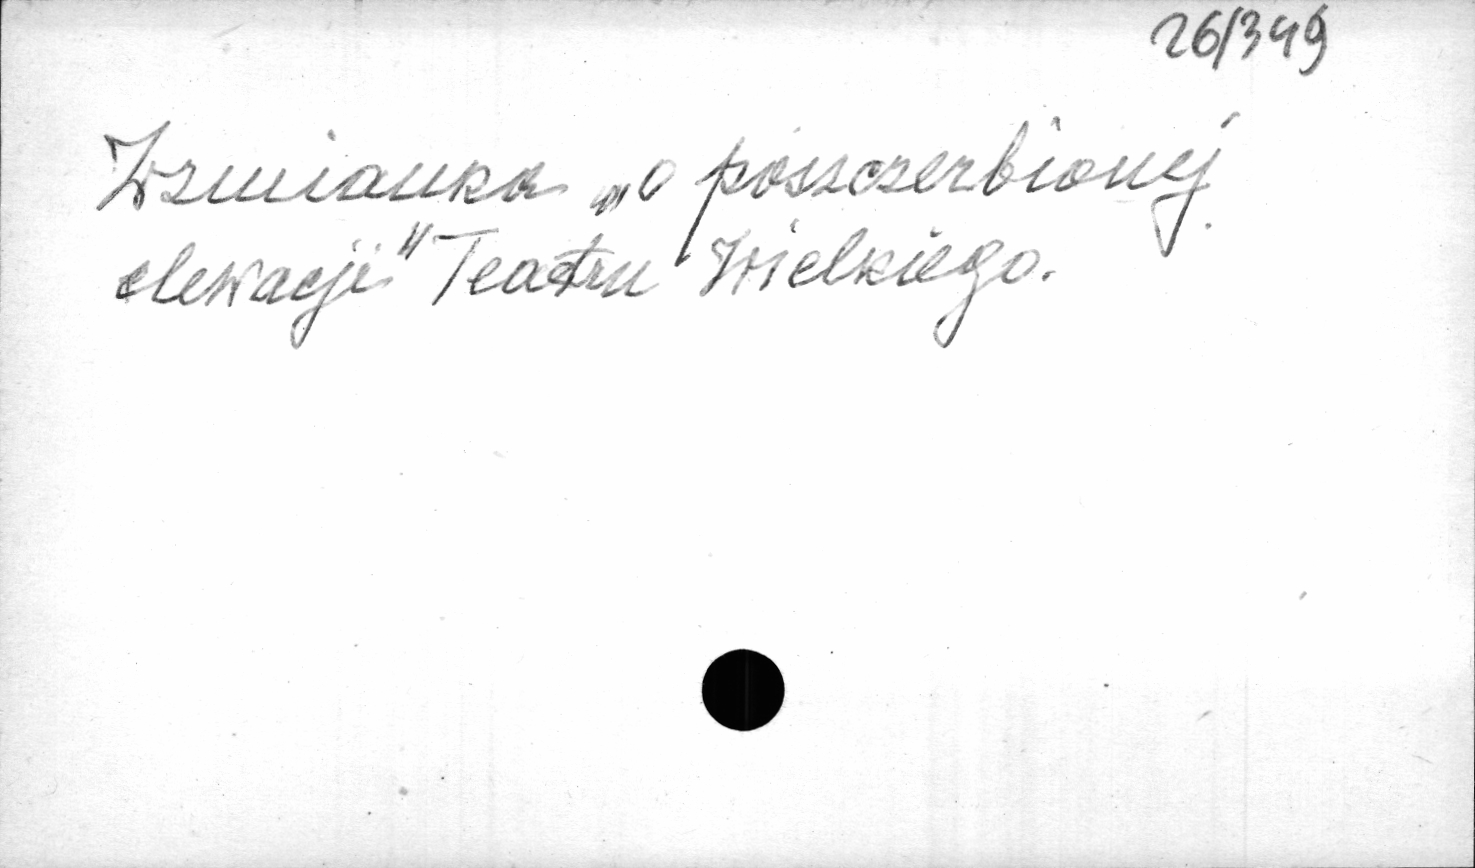 26/349
Wzmianka „o poszczerbionej
elewacji" Teatru Wielkiego.